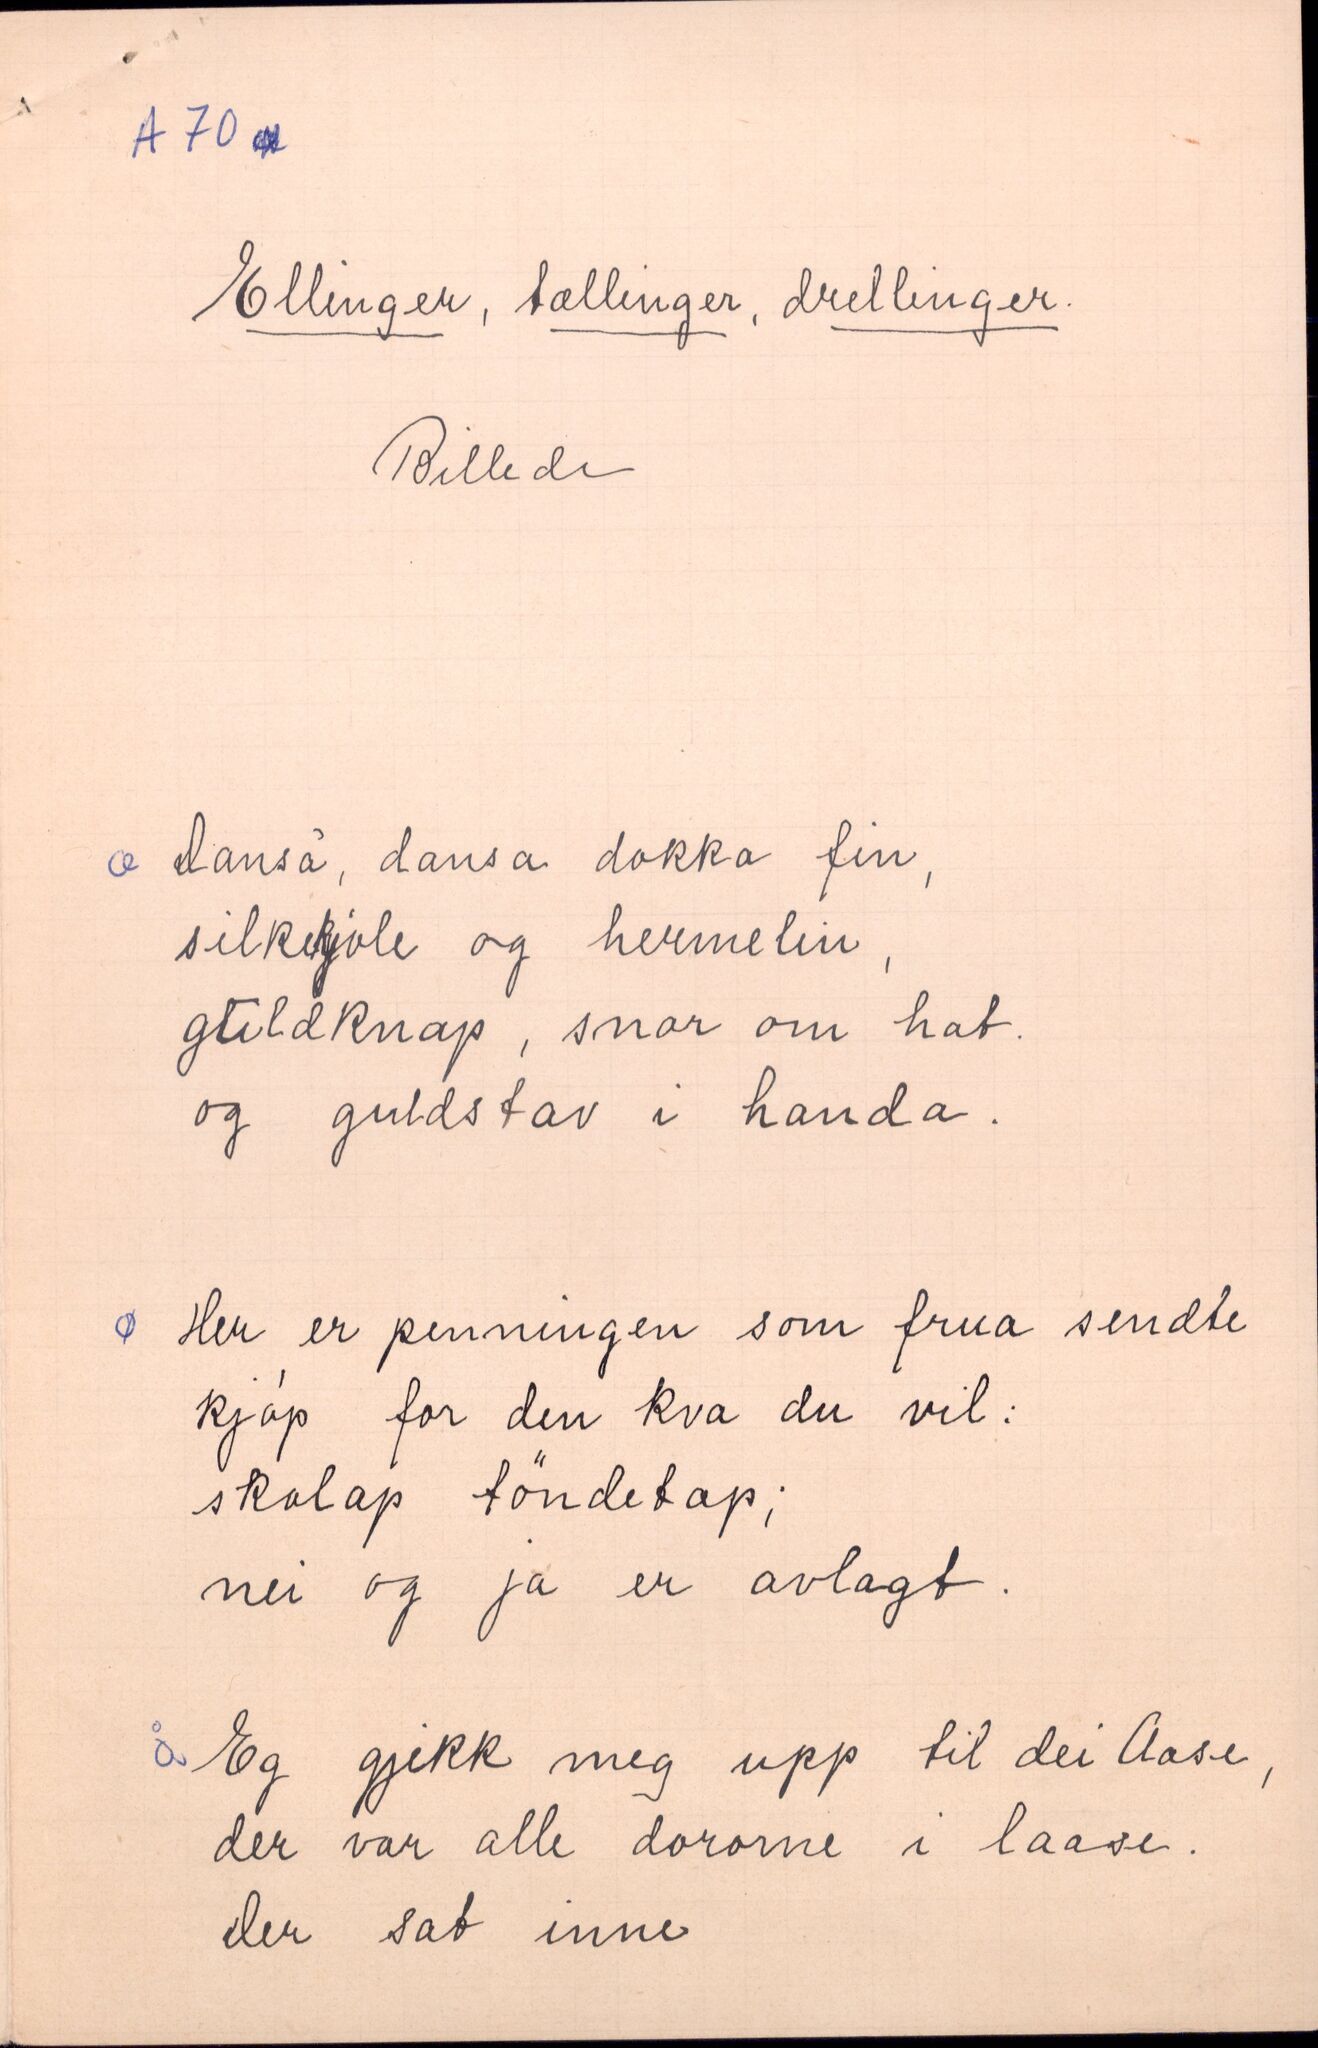 A 70
Ellinger, tællinger, drellinger.
Billede
æ Dansa, dansa dokka fin,
silkekjole og hermelin,
guldknap, snor om hat.
og guldstav i handa.
ø Her er penningen som frua sendte
kjöp for den kva du vil:
skolap töndetap;
nei og ja er avlagt.
å Eg gjekk meg upp til dei Aase,
der var alle dororne i laase.
Der sat inne